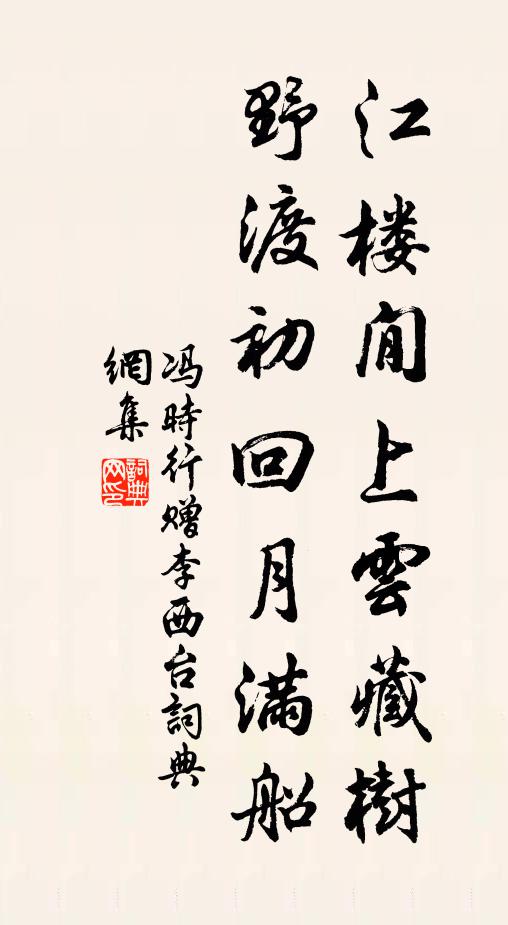 江楼閒上雲藏樹
野渡初回月满船
冯時行赠李西台詞典
網集
詞典網印